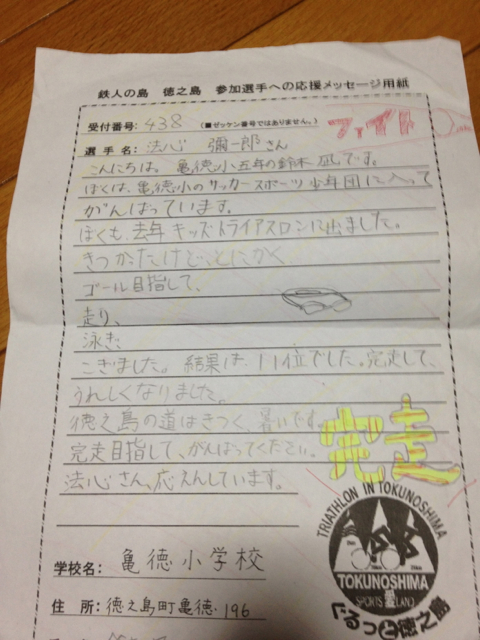 鉄人の島 徳之島 参加選手への応援メッセージ用紙
受付番号: 438 (■ゼッケン番号ではありません。)
ファイト
選手名: 法心 彌一郎さん
こんにちは。亀徳小五年の鈴木 凪です。
ぼくは、亀徳小のサッカースポーツ少年団に入って
がんばっています。
ぼくも、去年キッズトライアスロンに出ました。
きつかったけど、とにかく
ゴール目指して、
走り、
泳ぎ、
こぎました。結果は、11位でした。完走して、
うれしくなりました。
徳之島の道はきつく、暑いです。
完走目指して、がんばってください。
法心さん、応えんしています。
完走
TRIATHLON IN TOKUNOSHIMA
TOKUNOSHIMA
SPORTS ISLAND
ぐるっと徳之島
学校名: 亀徳小学校
住 所: 徳之島町亀徳 196